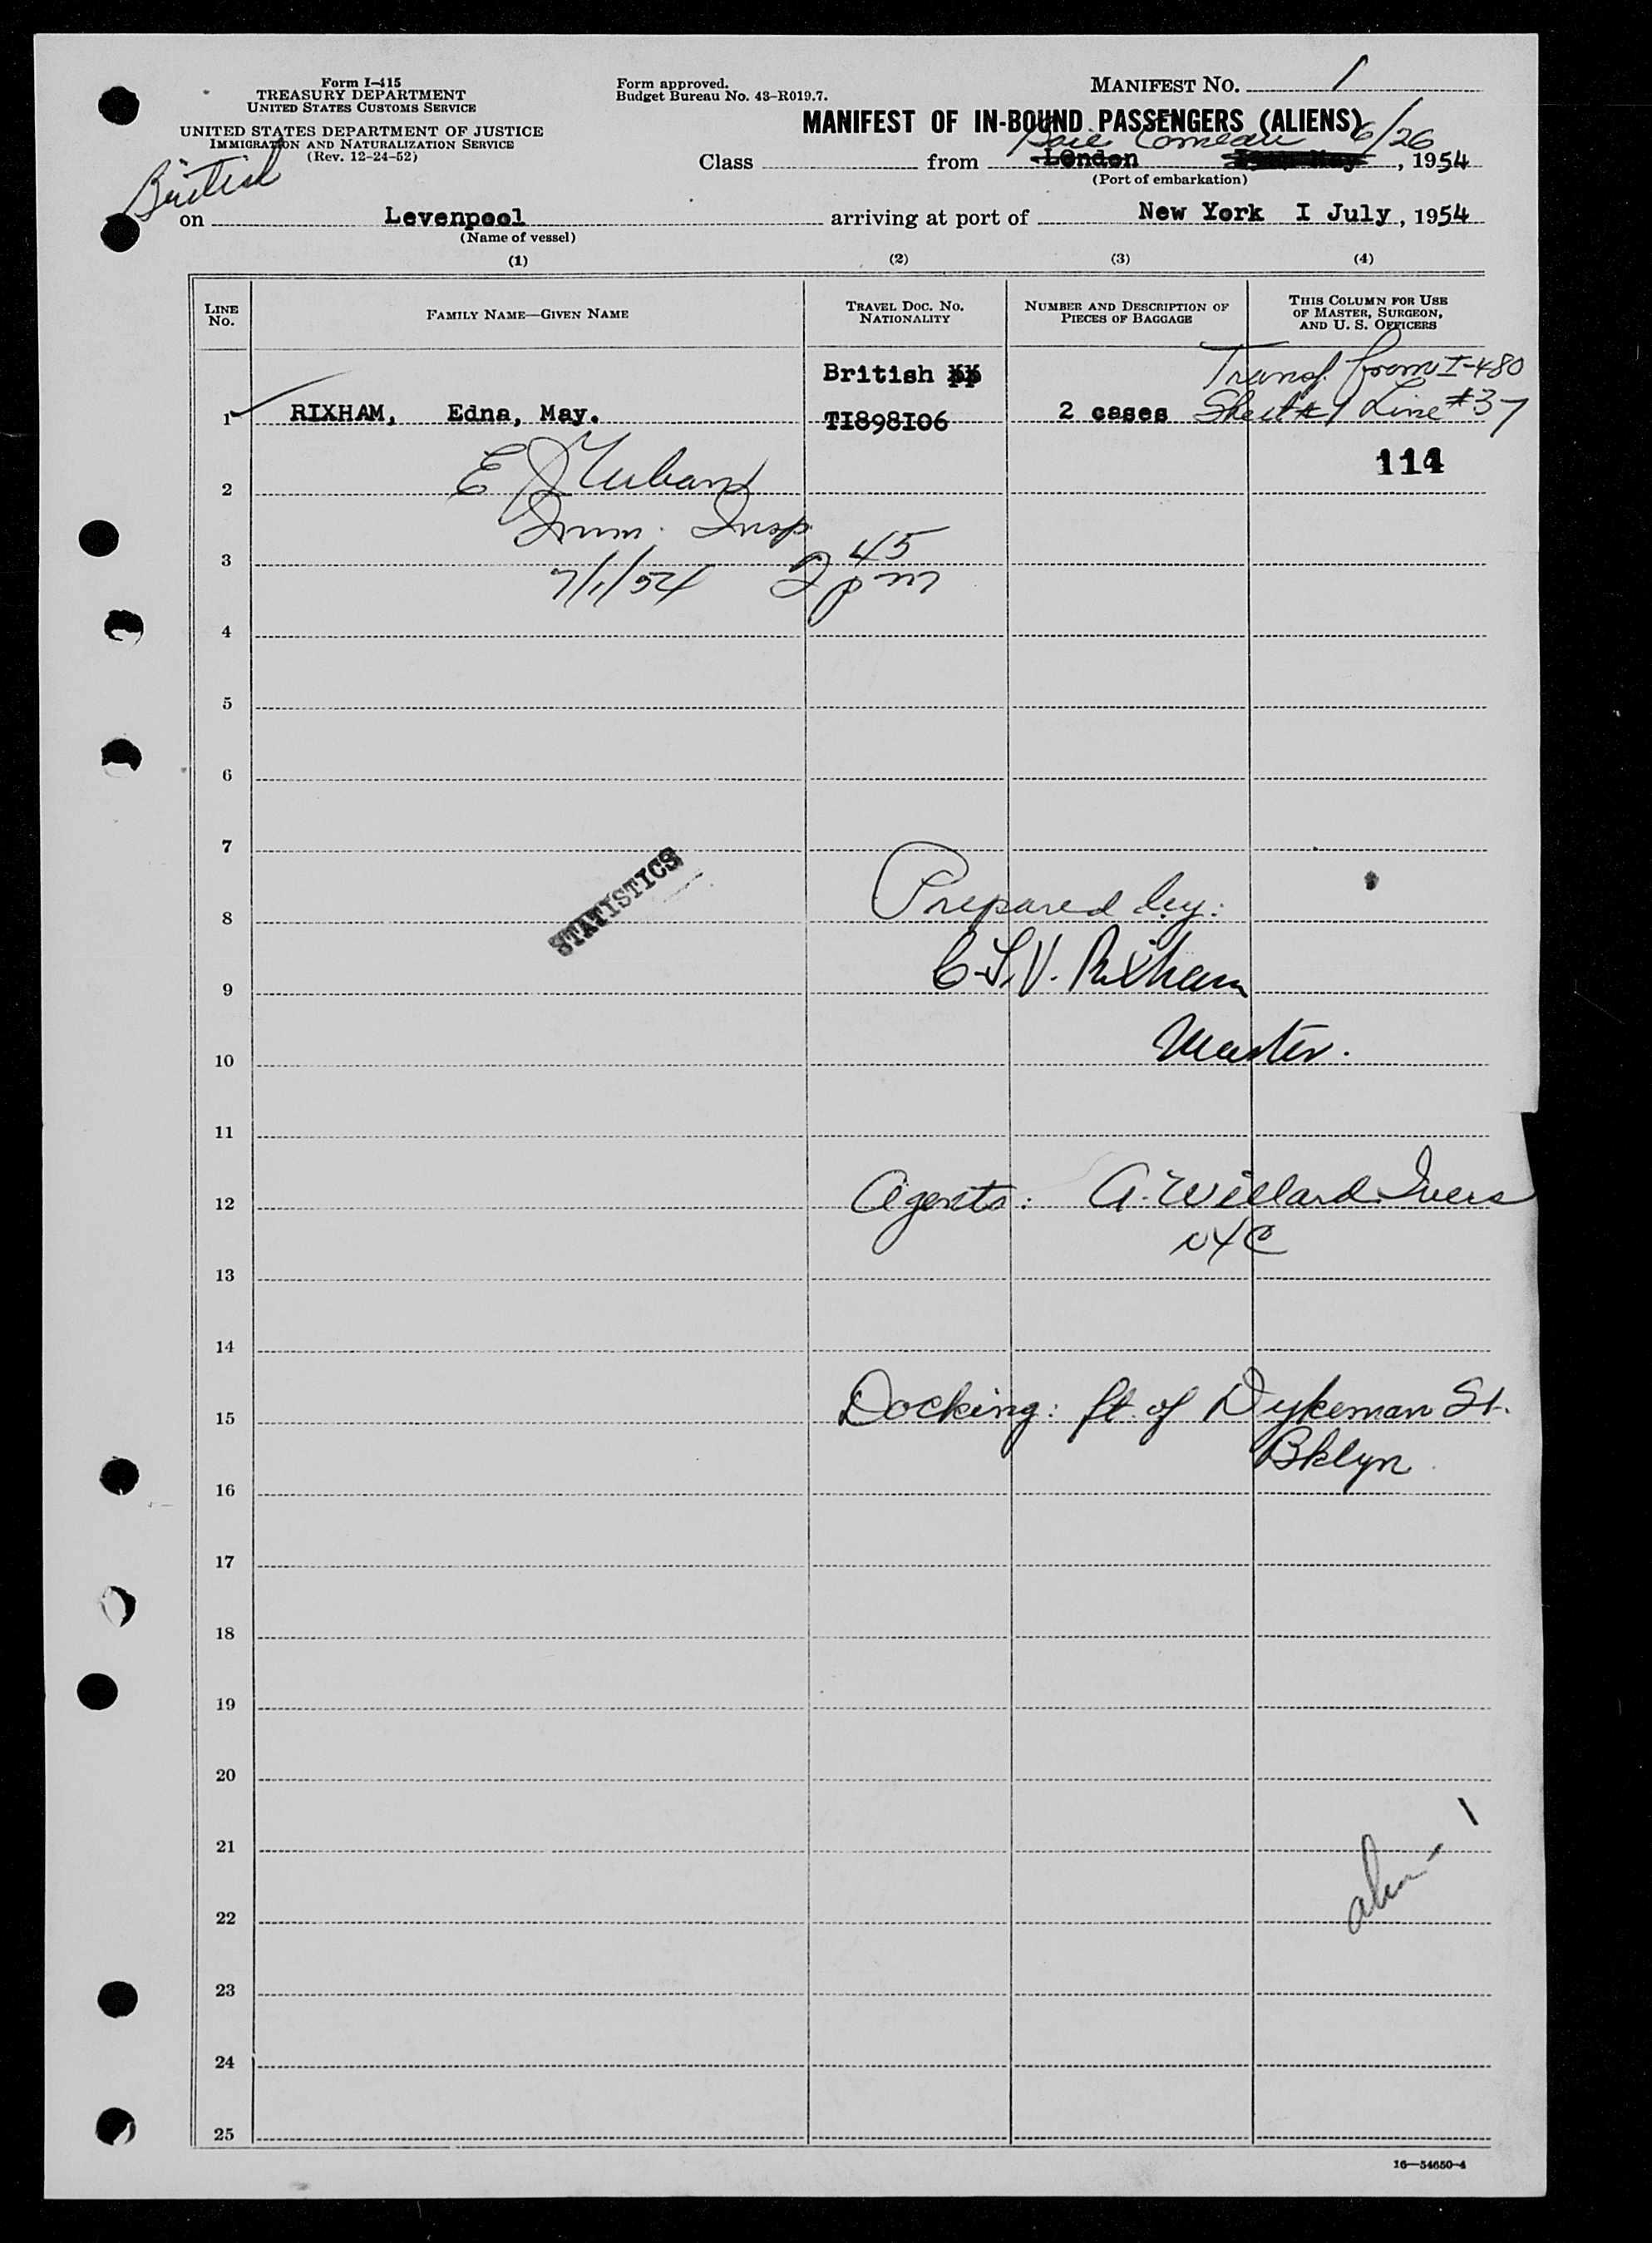 Form I-415
TREASURY DEPARTMENT
UNITED STATES CUSTOMS SERVICE
UNITED STATES DEPARTMENT OF JUSTICE
IMMIGRATION AND NATURALIZATION SERVICE
(Rev. 12-24-52)
Form approved.
Budget Bureau No. 43-R019.7.
MANIFEST NO. 1
MANIFEST OF IN-BOUND PASSENGERS (ALIENS)
Baie Comeau 6/26
Class from London May, 1954
(Port of embarkation)
British
on Levenpool arriving at port of New York I July, 1954
(Name of vessel)
(1) (2) (3) (4)
LINE No. FAMILY NAME—GIVEN NAME TRAVEL DOC. NO. NATIONALITY NUMBER AND DESCRIPTION OF PIECES OF BAGGAGE THIS COLUMN FOR USE OF MASTER, SURGEON, AND U. S. OFFICERS
British Transf. from I-480
1 RIXHAM, Edna, May. TI898I06 2 cases Sheet #1 Line #37
114
2 E
Imm. Insp
3 45
7/1/54 2 pm
4
5
6
7
STATISTICS
8 Prepared by:
9 C.S.V. Rixham
10 Master.
11
12 Agents: A. Willard Ivers
NYC
13
14
15 Docking: ft. of Dykeman St.
Bklyn
16
17
18
19
20
21 1
22
23
24
25
16—54650-4